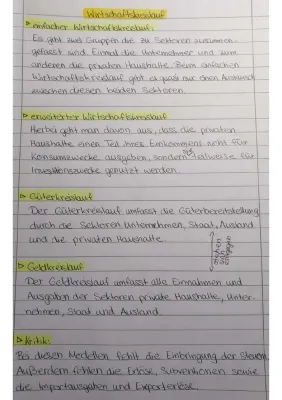 Wirtschaftskreislauf
▷ einfacher Wirtschaftskreislauf:
Es gibt zwei Gruppen die zu Sektoren zusammen-
gefasst sind. Einmal die Unternehmer und zum
anderen die privaten Haushalte. Beim einfachen
Wirtschaftskreislauf gibt es quasi nur einen Austausch
zwischen diesen beiden Sektoren.
▷ erweiterter Wirtschaftskreislauf
Hierbei geht man davon aus, dass die privaten
Haushalte einen Teil ihres Einkommens nicht für
Konsumzwecke ausgeben, sondern teilweise für
Investitionszwecke genutzt werden.
▷ Güterkreislauf
Der Güterkreislauf umfasst die Güterbereitstellung
durch die Sektoren Unternehmen, Staat, Ausland
und die privaten Haushalte.
▷ Geldkreislauf
Der Geldkreislauf umfasst alle Einnahmen und
Ausgaben der Sektoren private Haushalte, Unter-
nehmen, Staat und Ausland.
▷ Kritik:
Bei diesen Modellen fehlt die Einbringung der Steuern.
Außerdem fehlen die Erlöse, Subventionen sowie
die Importausgaben und Exporterlöse.